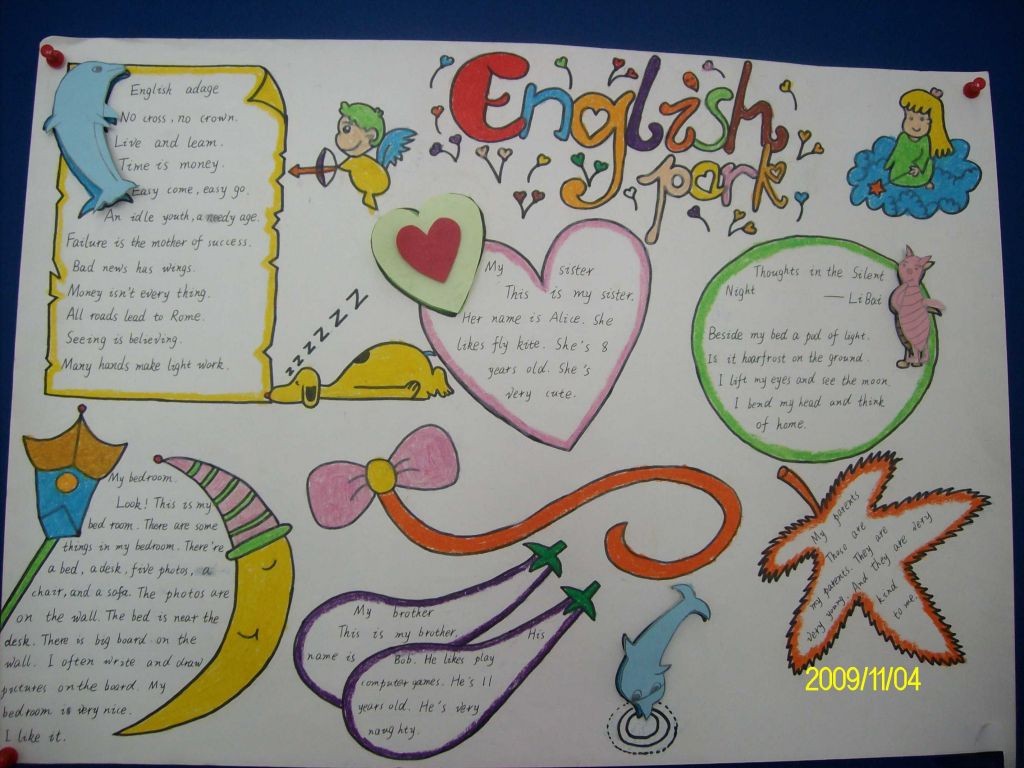 English
park
English adage
No cross, no crown.
Live and learn.
Time is money.
Easy come, easy go.
An idle youth, a needy age.
Failure is the mother of success.
Bad news has wings.
Money isn't every thing.
All roads lead to Rome.
Seeing is believing.
Many hands make light work.
zzzzzzz
My sister
This is my sister.
Her name is Alice. She
likes fly kite. She's 8
years old. She's
very cute.
Thoughts in the Silent
Night
— Li Bai
Beside my bed a pud of light.
Is it hoarfrost on the ground.
I lift my eyes and see the moon.
I bend my head and think
of home.
My bedroom.
Look! This is my
bed room. There are some
things in my bedroom. There're
a bed, a desk, five photos, a
chair, and a sofa. The photos are
on the wall. The bed is near the
desk. There is big board on the
wall. I often write and draw
pictures on the board. My
bedroom is very nice.
I like it.
My brother
This is my brother. His
name is Bob. He likes play
computer games. He's 11
years old. He's very
naughty.
My parents
These are
my parents. They are
very young. And they are very
kind
to me.
2009/11/04